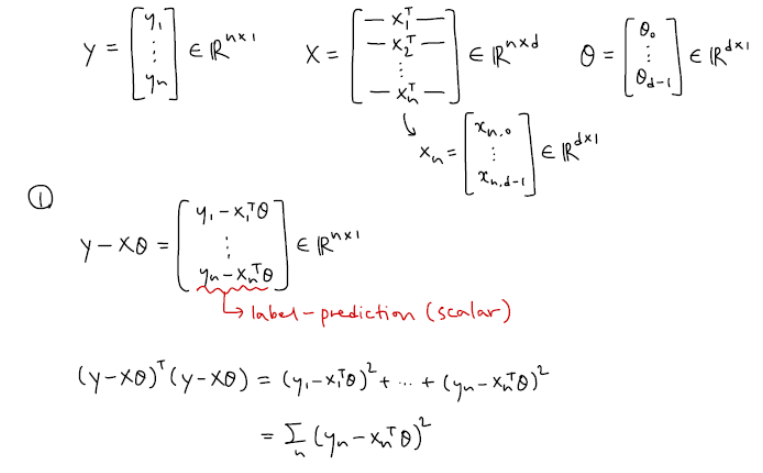 Y = [y₁ ⋮ yₙ] ∈ ℝⁿˣ¹   X = [— x₁ᵀ — — x₂ᵀ — ⋮ — xₙᵀ —] ∈ ℝⁿˣᵈ   θ = [θ₀ ⋮ θ_{d-1}] ∈ ℝᵈˣ¹
↳ xₙ = [x_{n,0} ⋮ x_{n,d-1}] ∈ ℝᵈˣ¹
①
y - Xθ = [y₁ - x₁ᵀθ ⋮ yₙ - xₙᵀθ] ∈ ℝⁿˣ¹
↳ label - prediction (scalar)
(y - Xθ)ᵀ(y - Xθ) = (y₁ - x₁ᵀθ)² + ... + (yₙ - xₙᵀθ)²
= Σₙ (yₙ - xₙᵀθ)²